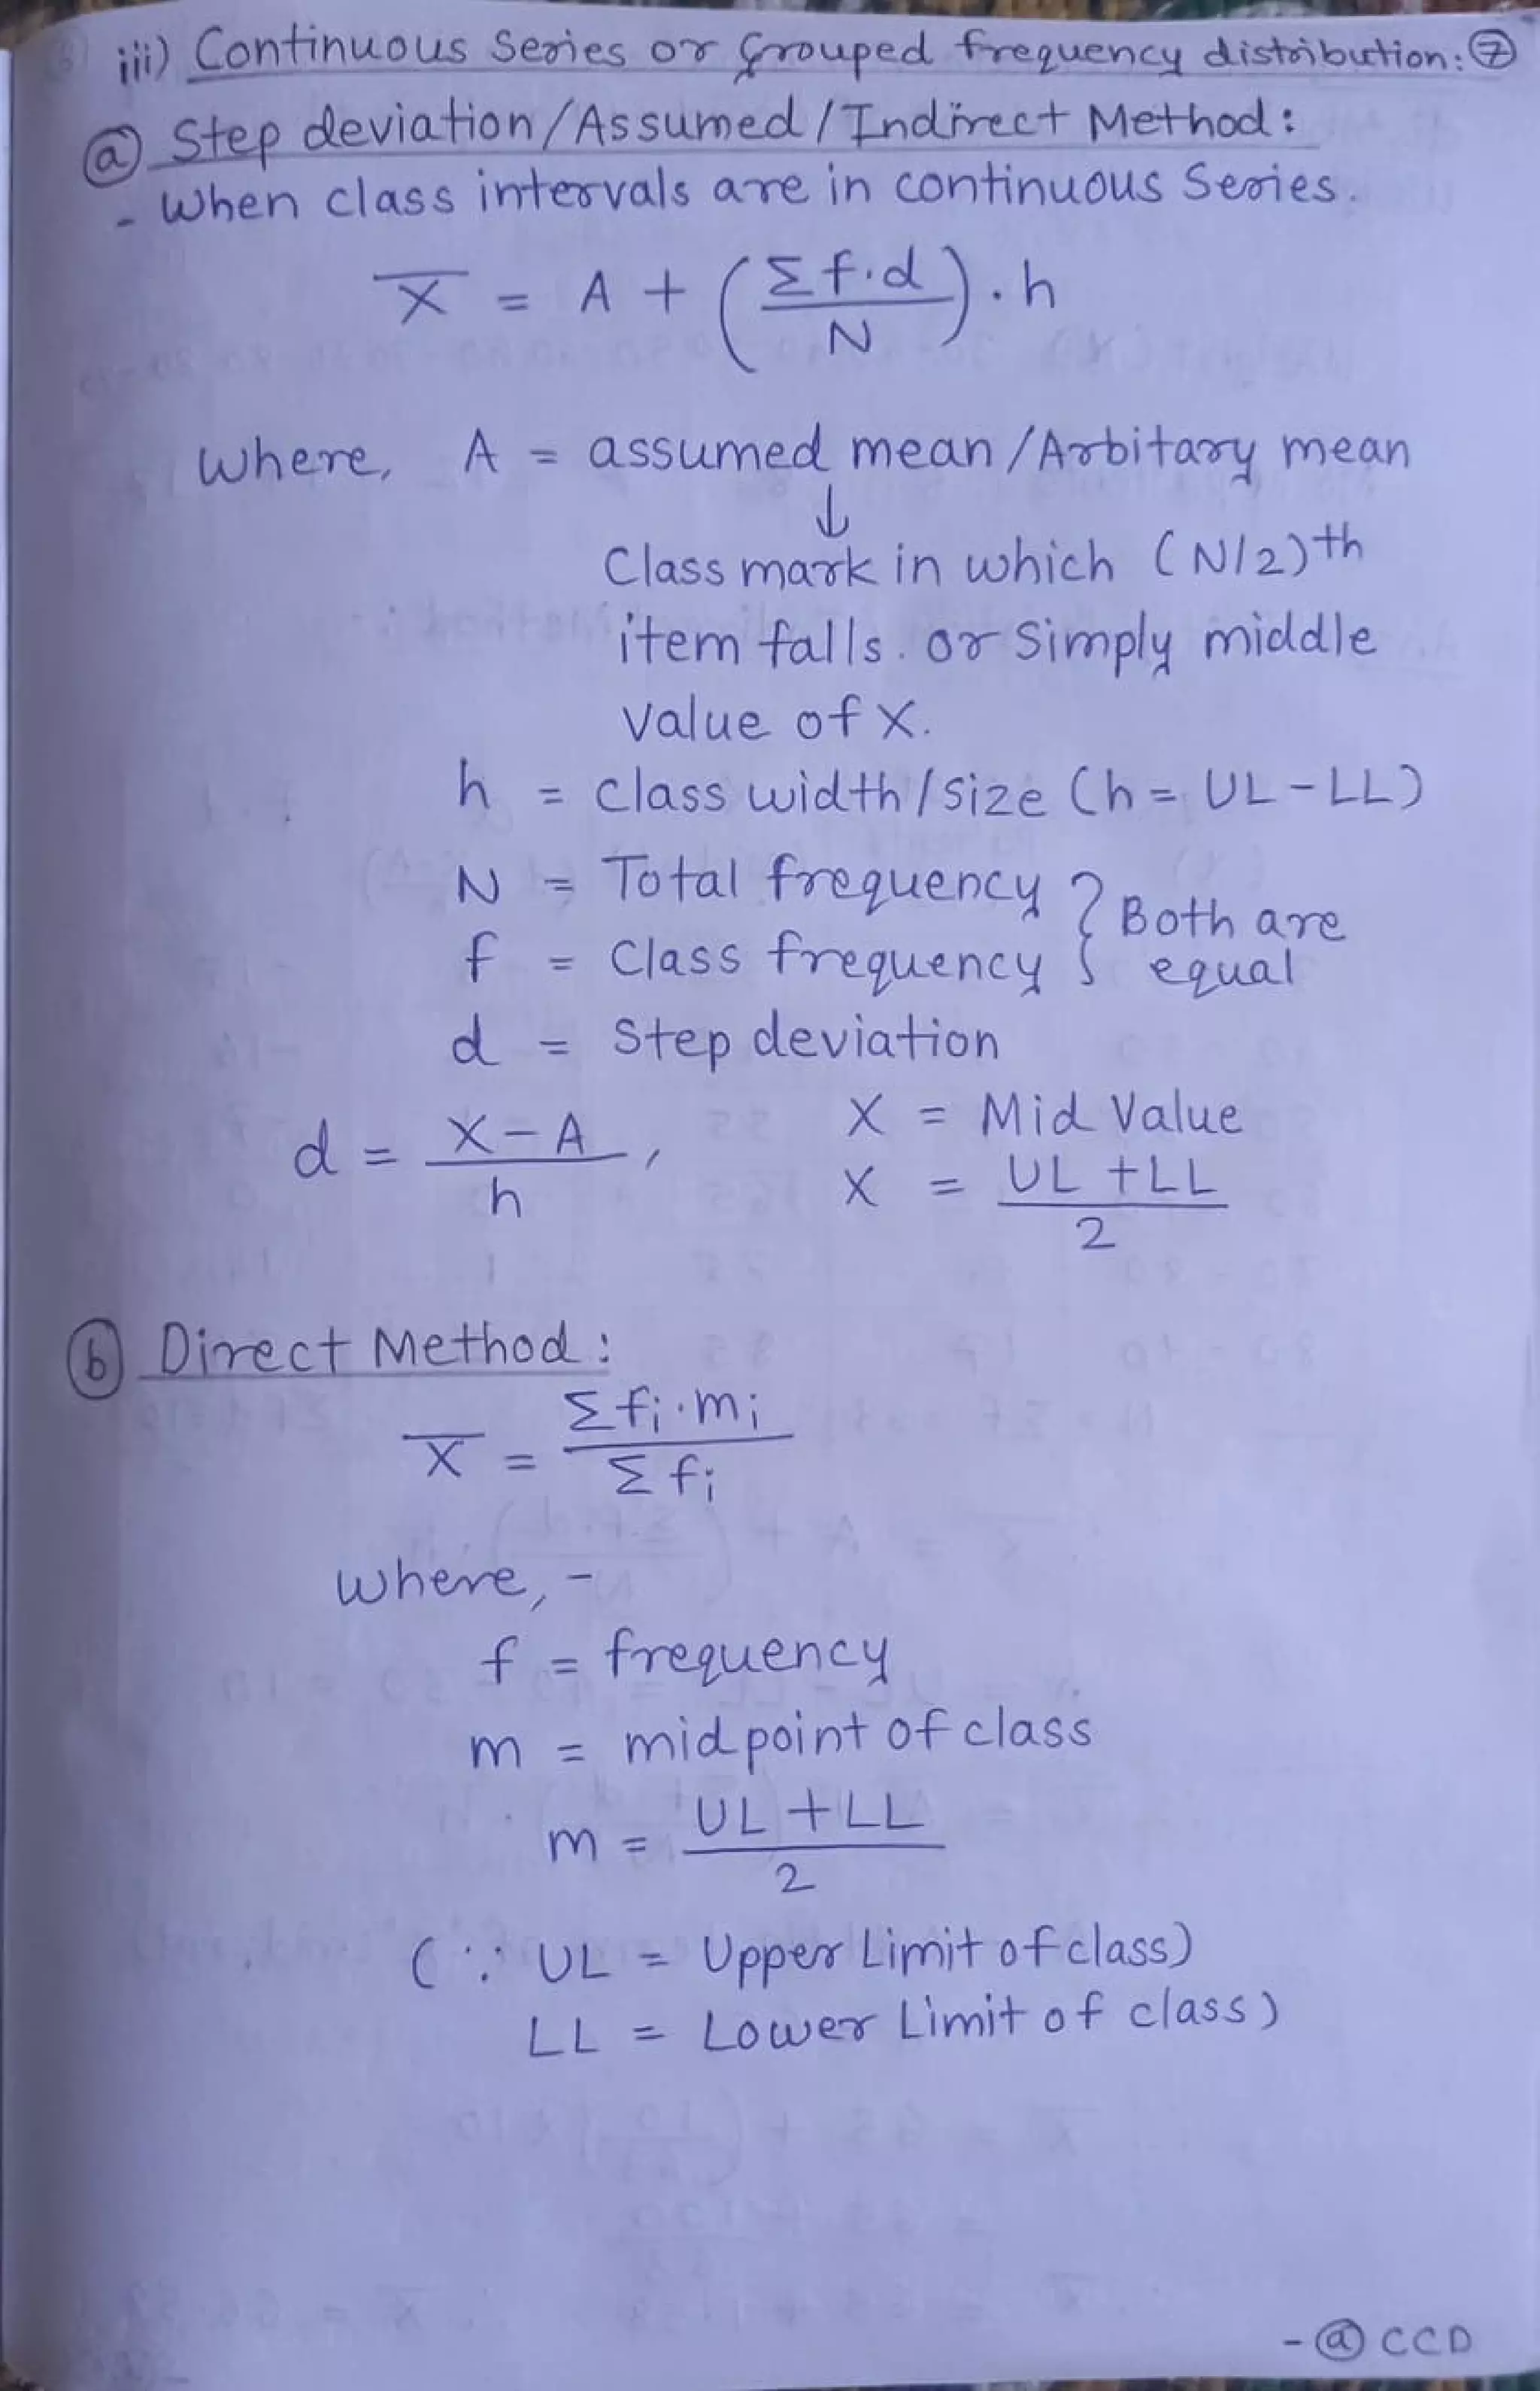 iii) Continuous Series or Grouped frequency distribution: ⑦
ⓐ Step deviation/Assumed/Indirect Method:
- When class intervals are in continuous Series.
X̅ = A + (Σf.d / N) . h
Where, A = assumed mean/Arbitary mean
↓
Class mark in which (N/2)th
item falls. or Simply middle
value of X.
h = class width/size (h = UL - LL)
N = Total frequency } Both are
f = Class frequency } equal
d = Step deviation
d = X - A / h , X = Mid Value
X = UL + LL / 2
ⓑ Direct Method:
X̅ = Σfi.mi / Σfi
Where, -
f = frequency
m = midpoint of class
m = UL + LL / 2
(∵ UL = Upper Limit of class)
LL = Lower Limit of class)
- @ CCD